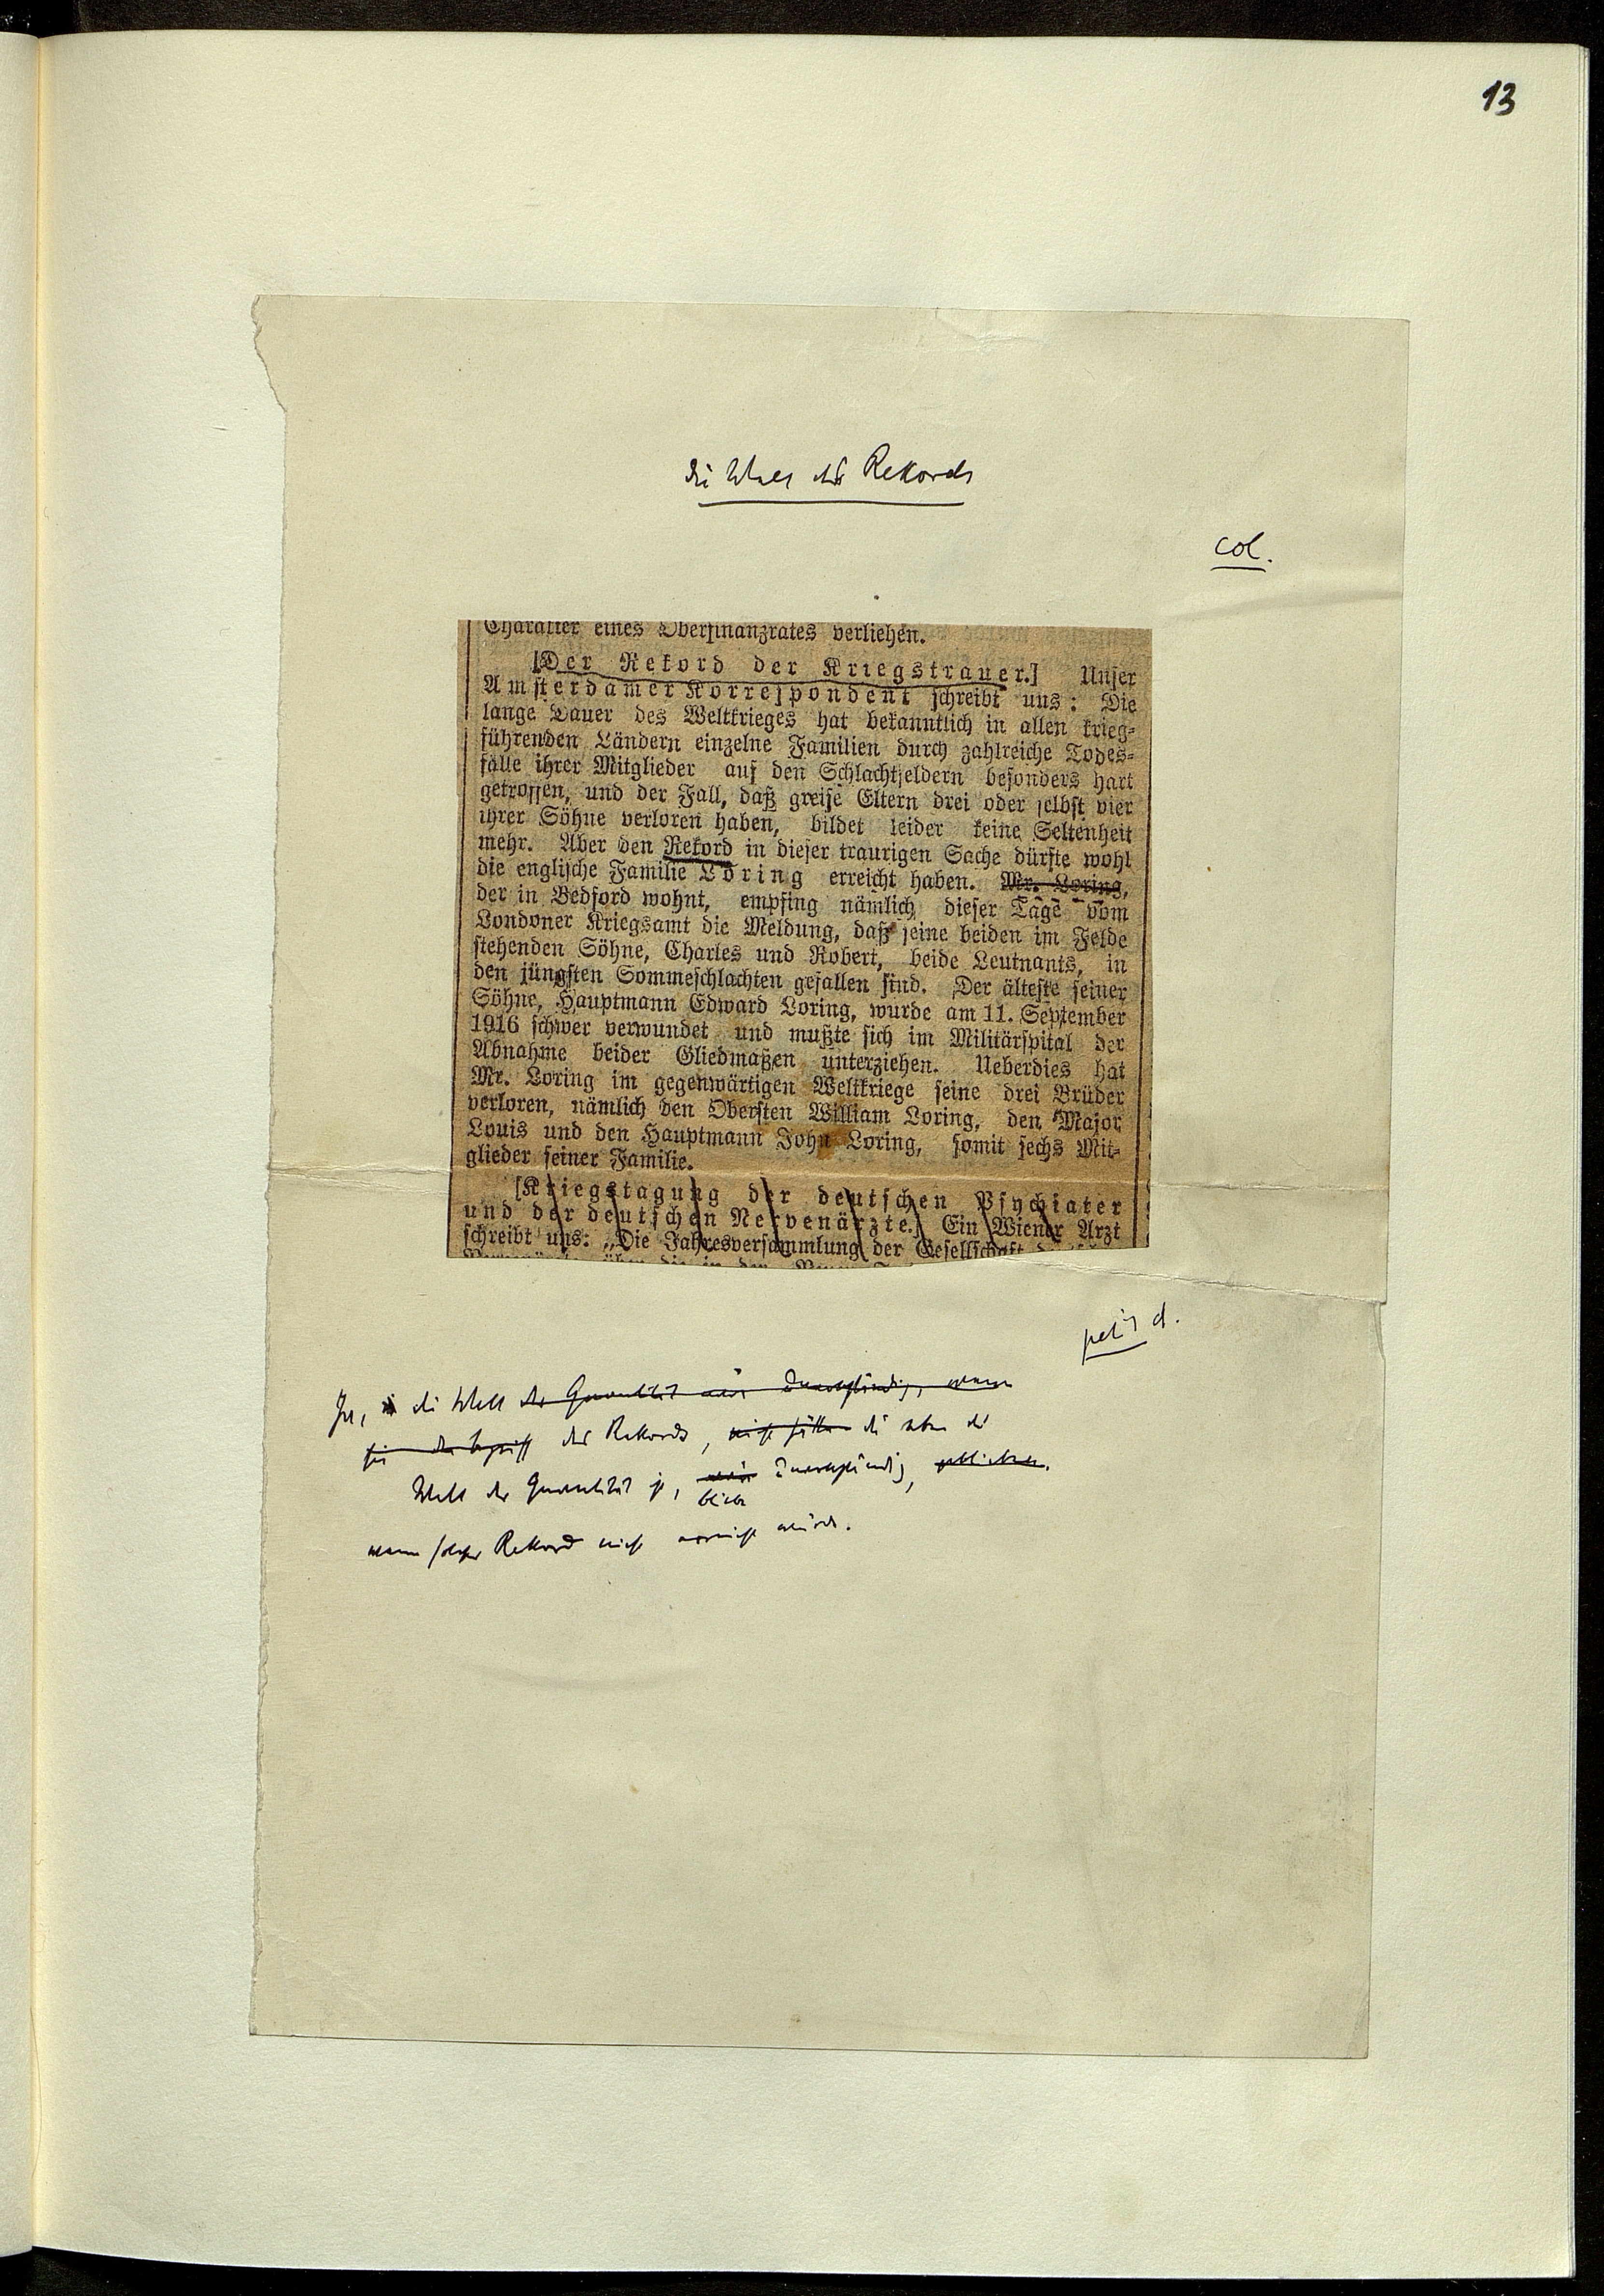 13
Die Welt des Rekords
col.
Charakter eines Oberfinanzrates verliehen.
[Der Rekord der Kriegstrauer.] Unser
Amsterdamer Korrespondent schreibt uns: Die
lange Dauer des Weltkrieges hat bekanntlich in allen krieg-
führenden Ländern einzelne Familien durch zahlreiche Todes-
fälle ihrer Mitglieder auf den Schlachtfeldern besonders hart
getroffen, und der Fall, daß greise Eltern drei oder selbst vier
ihrer Söhne verloren haben, bildet leider keine Seltenheit
mehr. Aber den Rekord in dieser traurigen Sache dürfte wohl
die englische Familie Loring erreicht haben. Mr. Loring,
der in Bedford wohnt, empfing nämlich dieser Tage vom
Londoner Kriegsamt die Meldung, daß seine beiden im Felde
stehenden Söhne, Charles und Robert, beide Leutnants, in
den jüngsten Sommeschlachten gefallen sind. Der älteste seiner
Söhne, Hauptmann Edward Loring, wurde am 11. September
1916 schwer verwundet und mußte sich im Militärspital der
Abnahme beider Gliedmaßen unterziehen. Ueberdies hat
Mr. Loring im gegenwärtigen Weltkriege seine drei Brüder
verloren, nämlich den Obersten William Loring, den Major
Louis und den Hauptmann John Loring, somit sechs Mit-
glieder seiner Familie.
[Kriegstagung der deutschen Psychiater
und der deutschen Nervenärzte.] Ein Wiener Arzt
schreibt uns: „Die Jahresversammlung der Gesellschaft
petit d.
Ja, die Welt der Quantität wäre unvollständig, wenn
sie den Begriff des Rekords, nicht hätte die eben die
Welt der Quantität ist, wäre unvollständig,
bliebe
wenn solcher Rekord nicht erreicht würde.